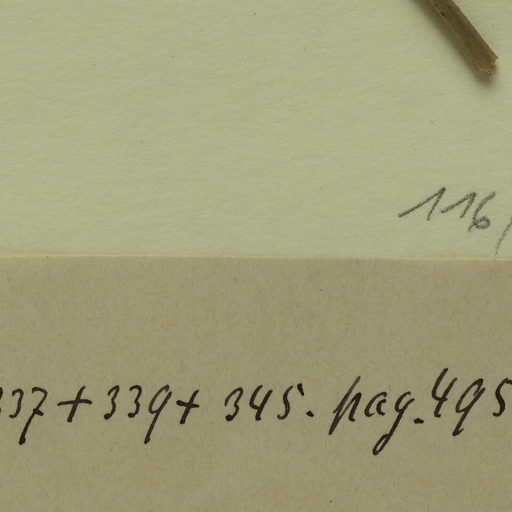 116/
337 + 339 + 345. pag. 495